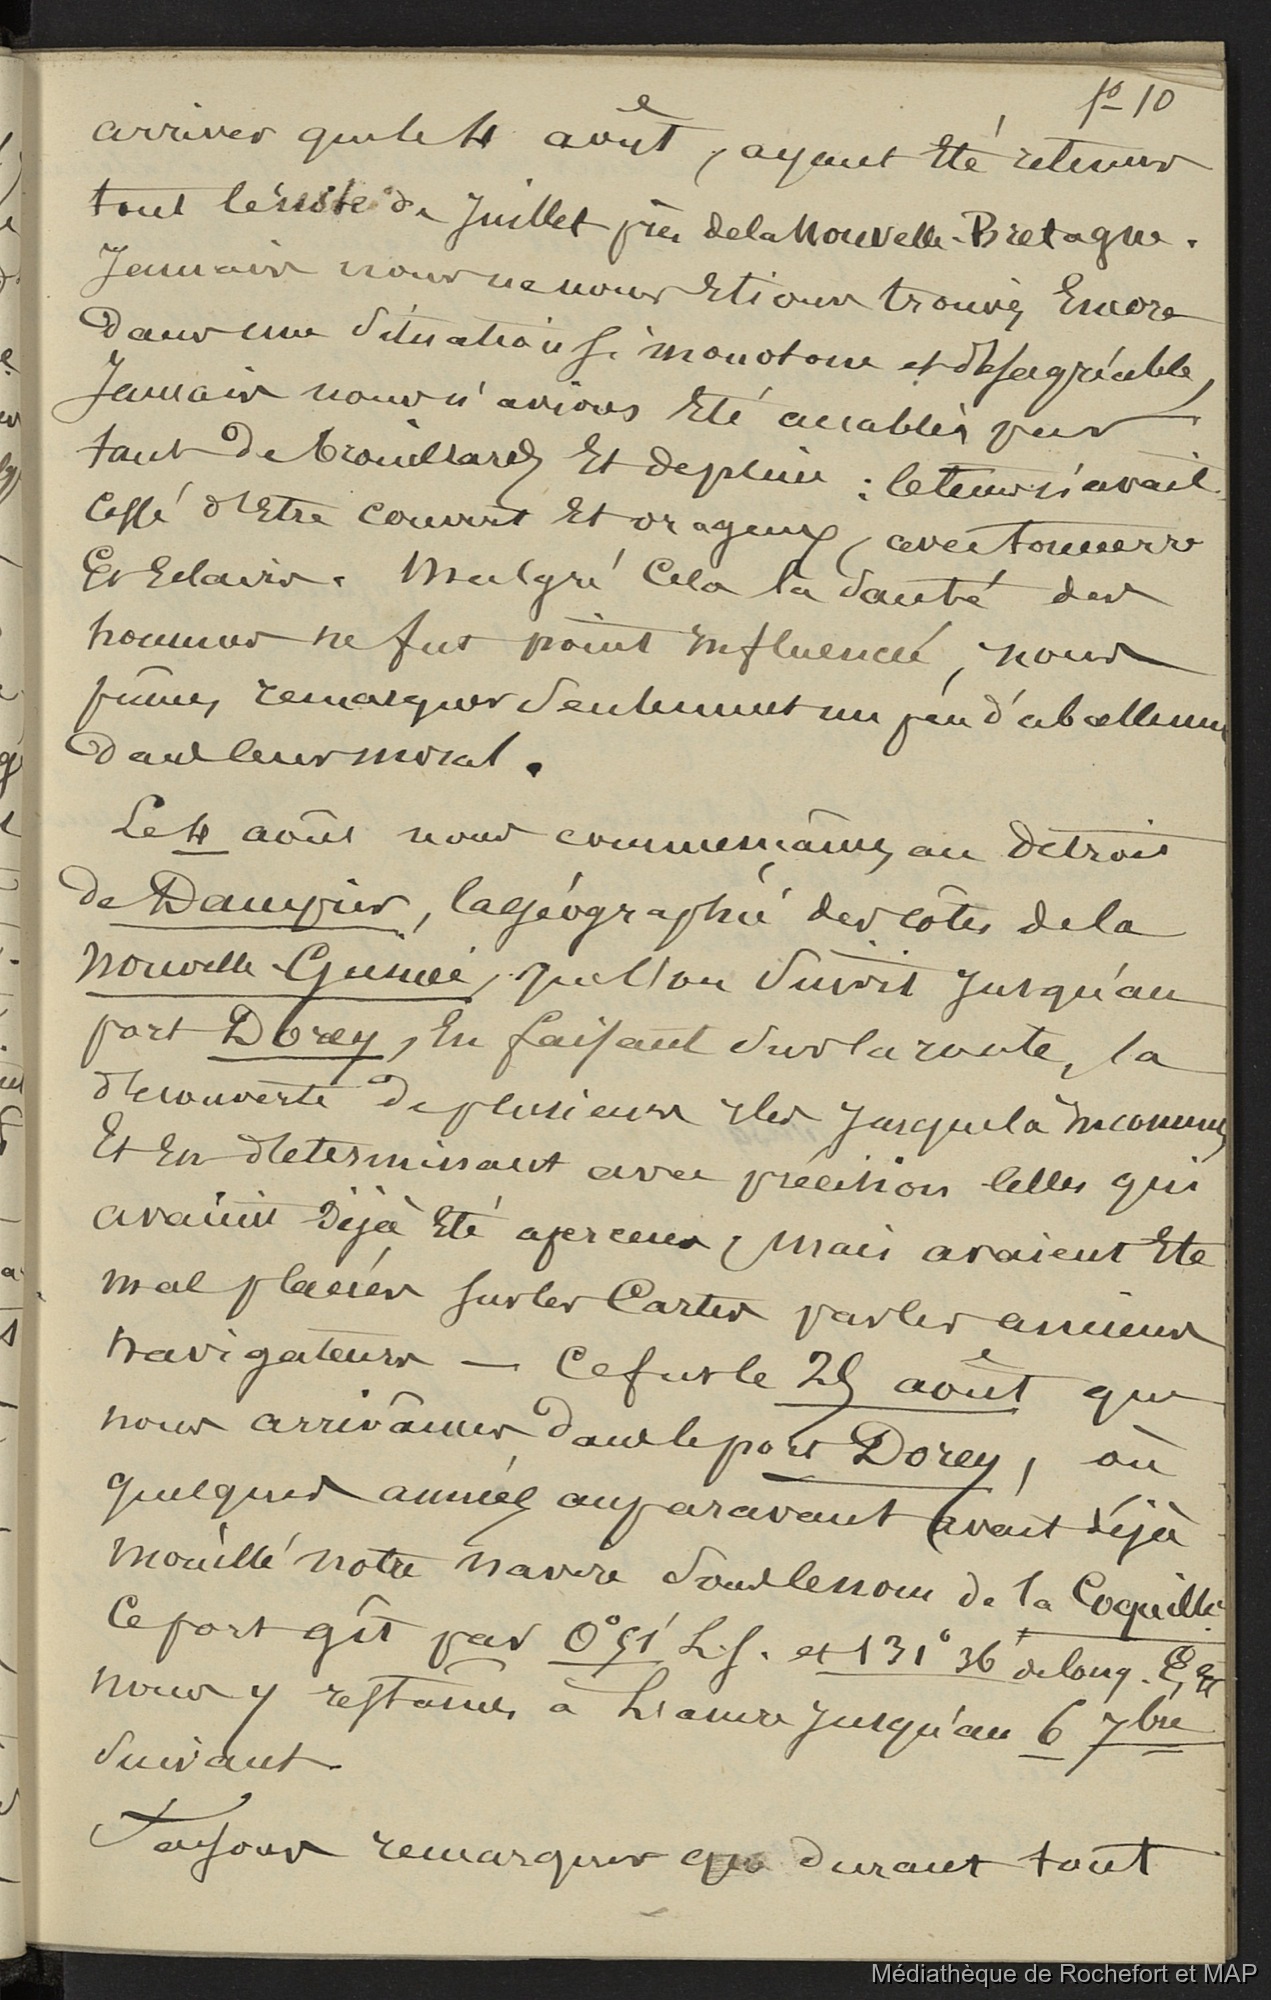 fo 10
arriver que le 4 août, ayant été retenus
tout le reste de Juillet près de la Nouvelle-Bretagne.
Jamais nous ne nous étions trouvés encore
dans une situation si monotone et désagréable,
Jamais nous n'avions été accablés par
tant de brouillards et de pluie : le tems n'avait
cessé d'être couvert et orageux, avec tonnerre
et éclairs. Malgré cela la santé des
hommes ne fut point influencé, nous
pûmes remarquer seulement un peu d'abattement
dans leur moral.
Le 4 août nous commençâmes au détroit
de Dampier, la géographie des côtes de la
Nouvelle-Guinée, que l'on suivit jusqu'au
port Dorey, en faisant sur la route, la
découverte de plusieurs îles jusque là inconnues
et en déterminant avec précision celles qui
avaient déjà été aperçues, mais avaient été
mal placées sur les Cartes par les anciens
navigateurs — Ce fut le 25 août que
nous arrivâmes dans le port Dorey, où
quelques années auparavant avait déjà
mouillé notre navire sous le nom de la Coquille.
Ce port gît par 0° 51' L.S. et 131° 36' de long. E, et
nous y restâmes à l'ancre jusqu'au 6 7bre
suivant.
Faisons remarquer que durant tout
Médiathèque de Rochefort et MAP